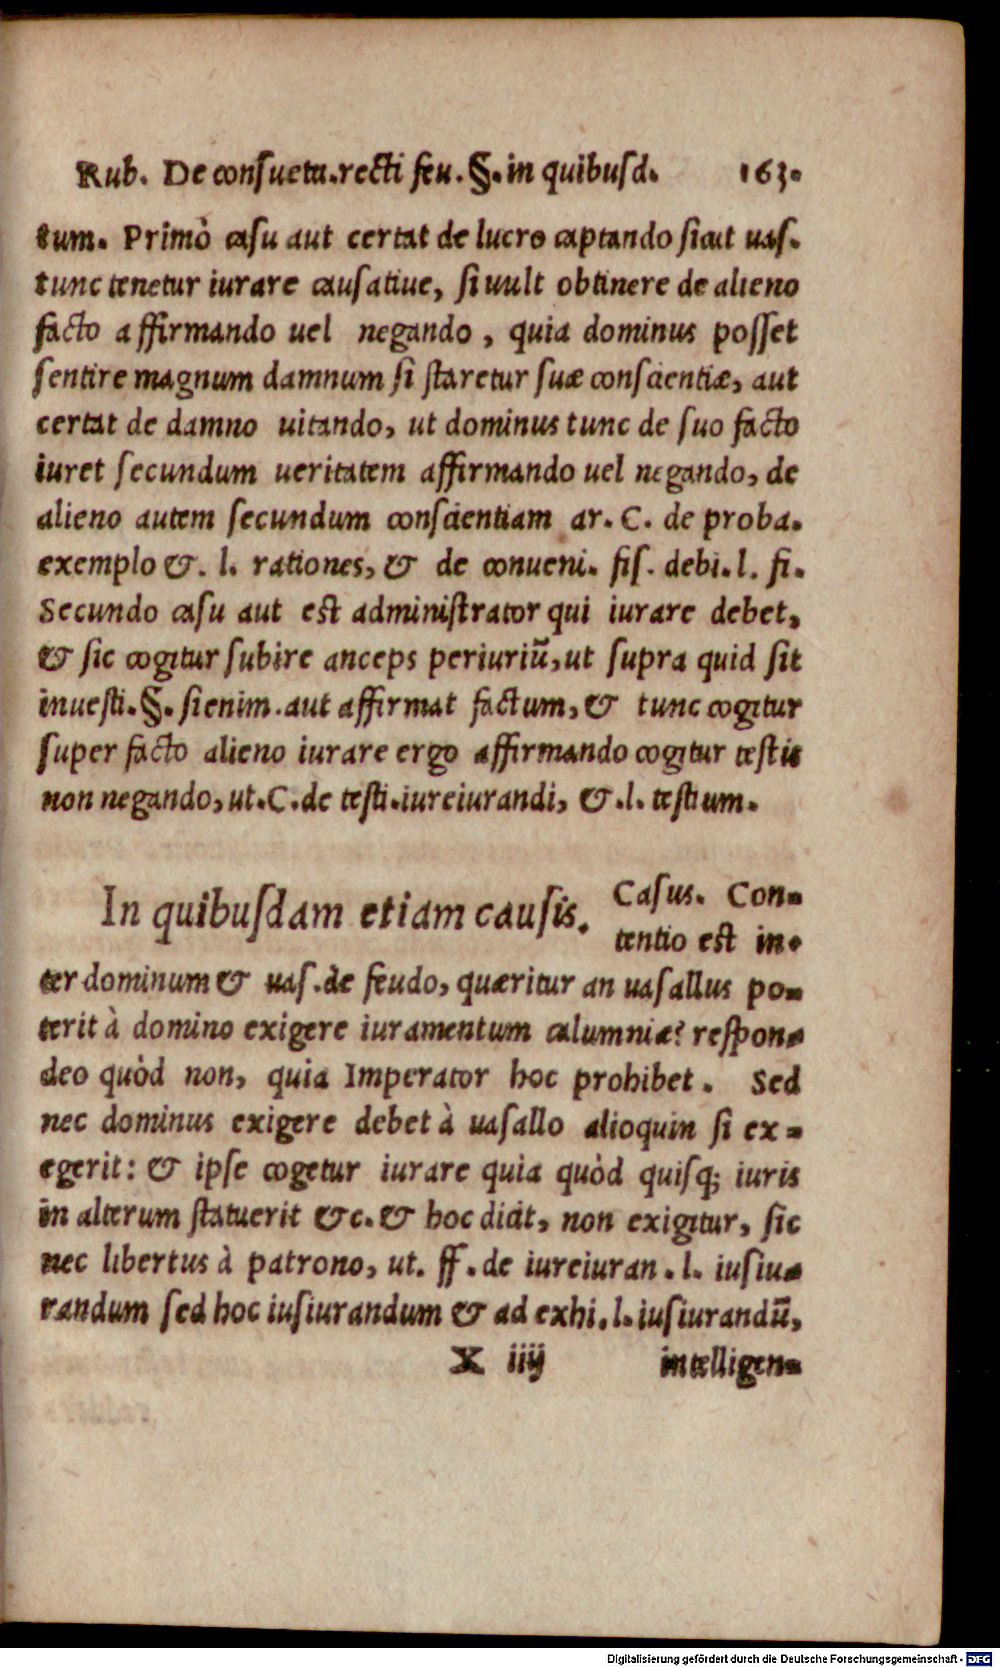 Rub. De consuetu.recti feu.§.in quibusd. 163.
tum. Primò casu aut certat de lucro captando sicut uas.
tunc tenetur iurare causatiue, si uult obtinere de alieno
facto affirmando uel negando, quia dominus posset
sentire magnum damnum si staretur suæ conscientiæ, aut
certat de damno uitando, ut dominus tunc de suo facto
iuret secundum ueritatem affirmando uel negando, de
alieno autem secundum conscientiam ar. C. de proba.
exemplo &. l. rationes, & de conueni. fis. debi. l. fi.
Secundo casu aut est administrator qui iurare debet,
& sic cogitur subire anceps periuriũ, ut supra quid sit
inuesti.§. si enim. aut affirmat factum, & tunc cogitur
super facto alieno iurare ergo affirmando cogitur testis
non negando, ut.C.de testi.iureiurandi, &.l. testium.
In quibusdam etiam causis. Casus. Con-
tentio est in-
ter dominum & uas.de feudo, quæritur an uasallus po-
terit à domino exigere iuramentum calumniæ? respon-
deo quòd non, quia Imperator hoc prohibet. Sed
nec dominus exigere debet à uasallo alioquin si ex-
egerit: & ipse cogetur iurare quia quòd quisq; iuris
in alterum statuerit &c. & hoc dicit, non exigitur, sic
nec libertus à patrono, ut. ff. de iureiuran. l. iusiu-
randum sed hoc iusiurandum & ad exhi. l. iusiurandũ,
X iiij intelligen-
Digitalisierung gefördert durch die Deutsche Forschungsgemeinschaft - DFG